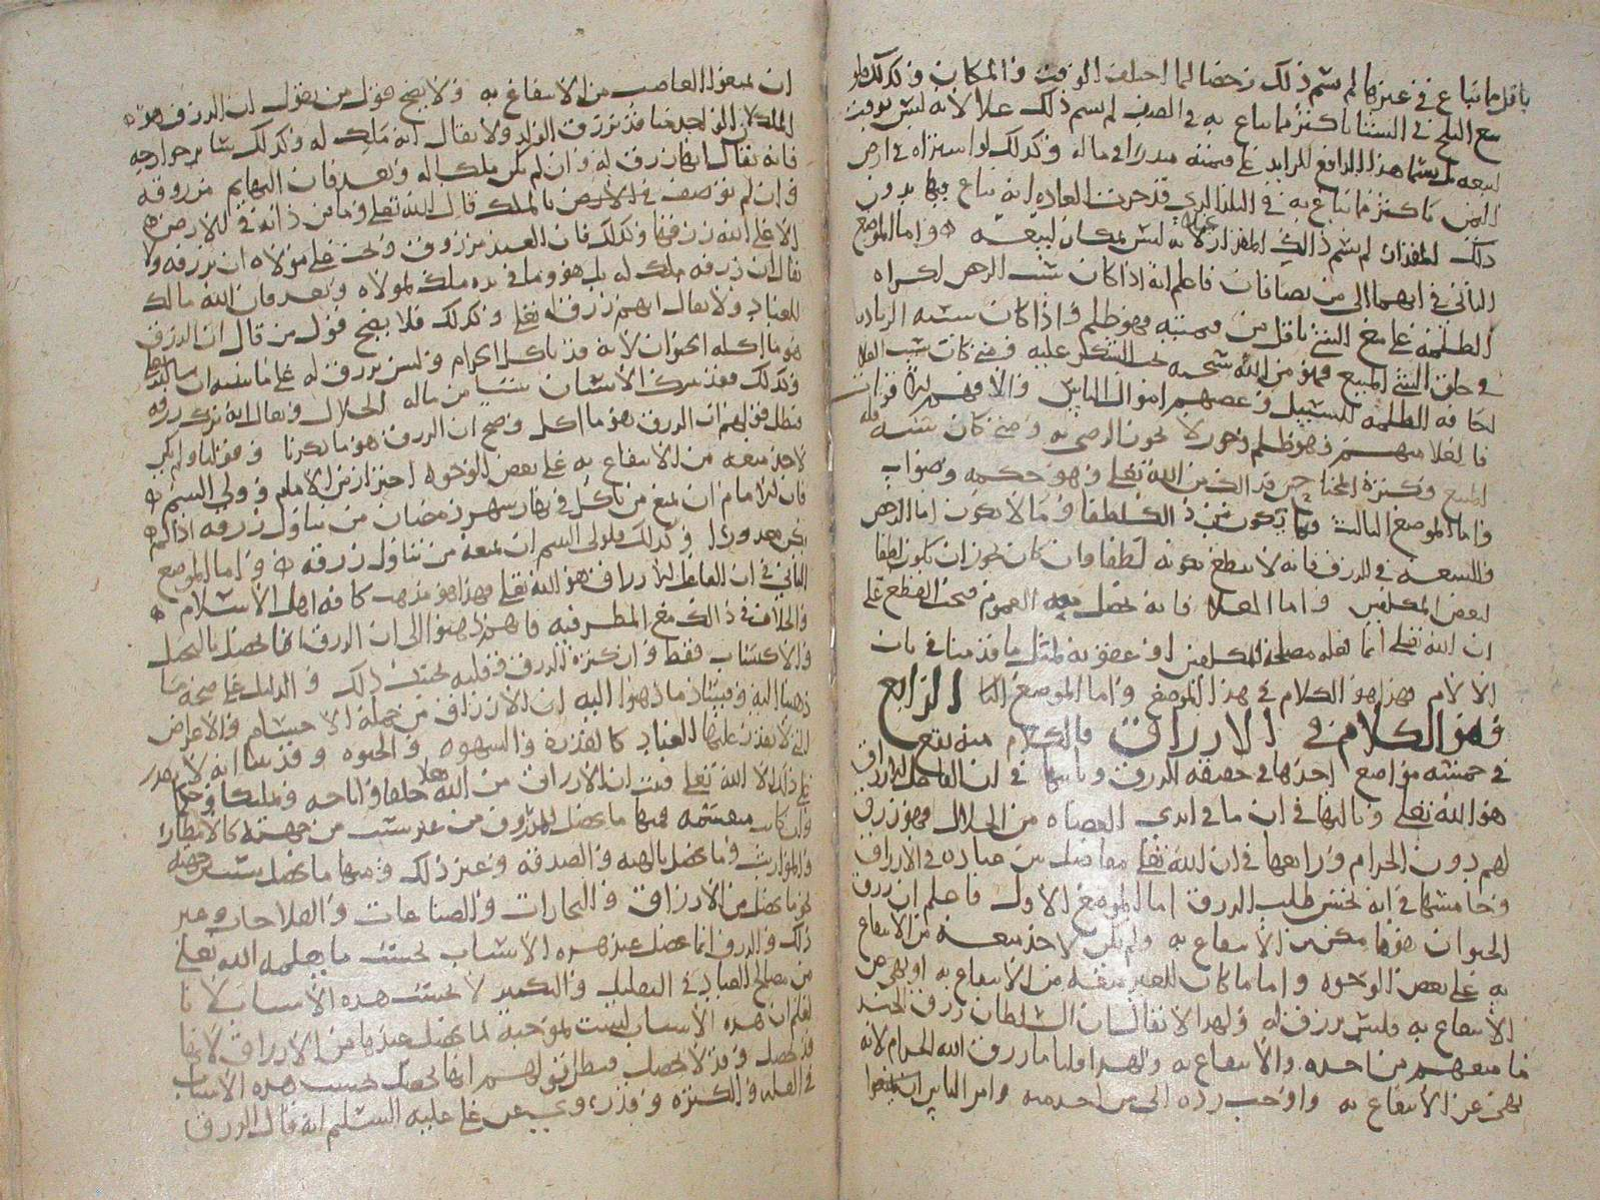 باقل مما تباع في غيرها لم يسم ذلك رخصا لما اختلف الوقت والمكان وكذلك فلو
بيع الثلج في الشتا باكثر مما يباع به في الصيف لم يسم ذلك غلا لانه ليس بوقت
لبيعه الزايد على قيمته وكذلك لو اشتراه في ارض
اليمن باكثر مما يباع به في البلد الذي قد جرت العادة انه يباع فيها بدون
ذلك المقدار لم يسم ذلك لانه ليس بمكان لبيعه واما الموضع
الثاني في انهما الى من يضافان فاعلم انه اذا كان سبب الرخص اكراه
الظلمة على بيع الشي باقل من قيمته فهو ظلم واذا كان سببه الزيادة
في خلق الشي المبيع فهو من الله سبحانه يجب الشكر عليه ومتى كان سبب الغلا
اخافة الظلمة للسبيل وغصبهم اموال الناس
فالغلا منهم وهو ظلم وجور لا يجوز الرضى به ومتى كان سببه قلة
المبيع وكثرة المحتاجين فذلك من الله تعالى وهو حكمة وصواب
واما الموضع الثالث فيما يكون من ذلك لطفا وما لا يكون اما الرخص
والسعة في الرزق فانه لا يقطع بكونه لطفا وان كان يجوز ان يكون لطفا
لبعض المكلفين واما الغلا فانه يحصل معه الغموم فيجب القطع على
ان الله تعالى انما فعله مصلحة للمكلفين او عقوبة لمثل ما قدمنا في باب
الالام فهذا هو الكلام في هذا الموضع واما الموضع الرابع
وهو الكلام في الارزاق فالكلام منه يقع
في خمسة مواضع احدها في حقيقة الرزق وثانيها في ان الفاعل للارزاق
هو الله تعالى وثالثها في ان ما في ايدي العصاة من الحلال فهو رزق
لهم دون الحرام ورابعها في ان الله تعالى فاضل بين عباده في الارزاق
وخامسها في انه يحسن طلب الرزق اما الموضع الاول فاعلم ان رزق
الحيوان هو ما مكن من الانتفاع به ولم يكن لاحد منعه من الانتفاع
به على بعض الوجوه واما ما كان للغير منعه من الانتفاع به او نهي عن
الانتفاع به فليس برزق له ولهذا لا يقال ان السلطان رزق الجند
ما منعهم من اخذه والانتفاع به ولهذا قلنا ما رزق الله الحرام لانه
نهى عن الانتفاع به واوجب رده الى من اخذ منه وامر الناس ان يمنعوا
ان يمنعوا الغاصب من الانتفاع به ولا يصح قول من يقول ان الرزق هو
الملك لان الواحد منا قد يرزق الولد ولا يقال انه ملك له وكذلك سائر جوارحه
فانه يقال انها رزق له وان لم يكن ملكا له وبعد فان البهايم مرزوقة
وان لم توصف بالملك قال الله تعالى وما من دابة في الارض
الا على الله رزقها وكذلك فان العبد مرزوق ويجب على مولاه ان يرزقه ولا
يقال ان رزقه ملك له بل هو وما في يده ملك لمولاه وبعد فان الله مالك
للعباد ولا يقال انهم رزق له تعالى وكذلك فلا يصح قول من قال ان الرزق
هو ما اكله الحيوان لانه قد ياكل الحرام وليس برزق له على ما نبينه ان شا الله
وكذلك فقد يترك الانسان شيئا من ماله الحلال ويقال انه ترك رزقه
فبطل قولهم ان الرزق هو ما اكل وصح ان الرزق هو ما ذكرنا وقولنا ولم يكن
لاحد منعه من الانتفاع به على بعض الوجوه احتراز من الامام وولي اليتيم
فان للامام ان يمنع من ياكل في نهار شهر رمضان من تناول رزقه اذا لم
يكن معذورا وكذلك فلولي اليتيم ان يمنعه من تناول رزقه واما الموضع
الثاني في ان الفاعل للارزاق هو الله تعالى فهذا هو مذهب كافة اهل الاسلام
والخلاف في ذلك مع المطرفية فانهم ذهبوا الى ان الرزق انما يحصل بالتحيل
والاكتساب فقط وان كثرة الرزق وقلته بحسب ذلك والدليل على صحة ما
ذهبنا اليه وفساد ما ذهبوا اليه ان الارزاق من جملة الاجسام والاعراض
التي لا يقدر عليها العباد كالقدرة والشهوة والحيوة وقد بينا انه لا يقدر
على ذلك الا الله تعالى فثبت ان الارزاق من الله خلقا واباحة وتمليكا
وان كانت منقسمة فمنها ما يحصل للمرزوق من غير سبب من جهته كالامطار
والمواريث وما يحصل بالهبة والصدقة وغير ذلك ومنها ما يحصل بسبب من جهته
نحو ما يحصل من الارزاق والتجارات والصناعات والفلاحات وغير
ذلك والرزق انما يحصل عند هذه الاسباب بحسب ما يعلمه الله تعالى
من مصالح العباد في التقليل والتكثير لا بحسب هذه الاسباب لانا
نعلم ان هذه الاسباب ليست بموجبة لما يحصل عندها من الارزاق لانها
قد تحصل وقد لا يحصل فبطل قولهم انها تحصل بحسب هذه الاسباب
في القلة والكثرة وقد روي عن علي عليه السلام انه قال الرزق